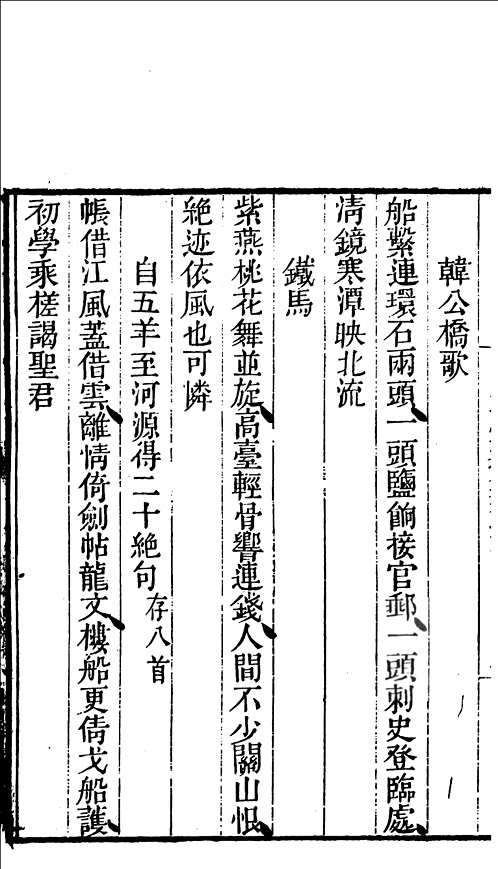 韓公橋歌
船繫連環石兩頭一頭鹽餉接官郵一頭刺史登臨處
清鏡寒潭映北流
鐵馬
紫燕桃花舞並旋高臺輕骨響連錢人間不少關山恨
絶迹依風也可憐
自五羊至河源得二十絶句存八首
帳借江風蓋借雲離情倚劍帖龍文樓船更倩戈船護
初學乘槎謁聖君